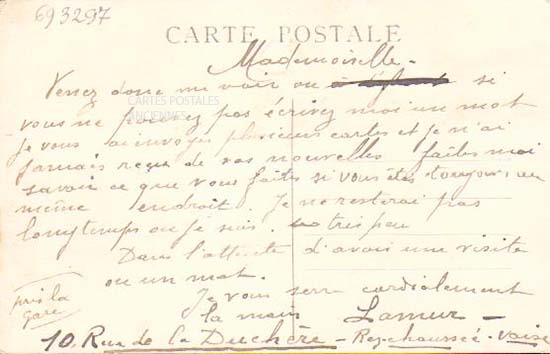 693297
CARTE POSTALE
Mademoiselle -
Venez donc me voir ou si
vous ne pouvez pas écrivez moi un mot
je vous ai envoyer plusieurs cartes et je n'ai
jamais reçu de vos nouvelles faites moi
savoir ce que vous faites si vous êtes toujours au
même endroit. Je ne resterai pas
longtemps ou je suis. très peu
Dans l'attente d'avoir une visite
ou un mot.
Je vous serre cordialement
la main Lamur -
près la
gare
10, Rue de la Duchère - Rez chaussée - Vaise
CARTES POSTALES
ANCIENNES